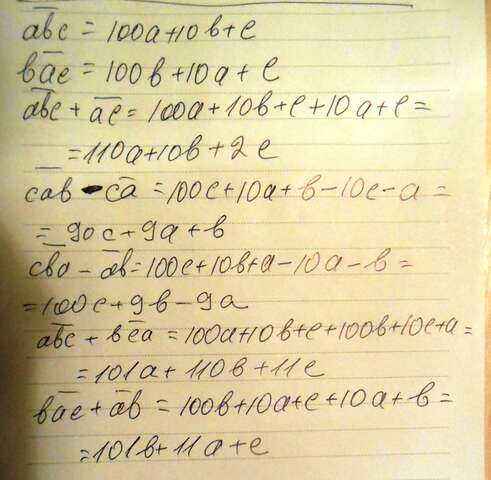 abc = 100a+10b+c
bac = 100b+10a+c
abc + ac = 100a+10b+c+10a+c=
=110a+10b+2c
cab - ca = 100c+10a+b-10c-a=
= 90c+9a+b
cba - ab = 100c+10b+a-10a-b=
=100c+9b-9a
abc + bca = 100a+10b+c+100b+10c+a=
=101a+110b+11c
bac + ab = 100b+10a+c+10a+b=
=101b+11a+c